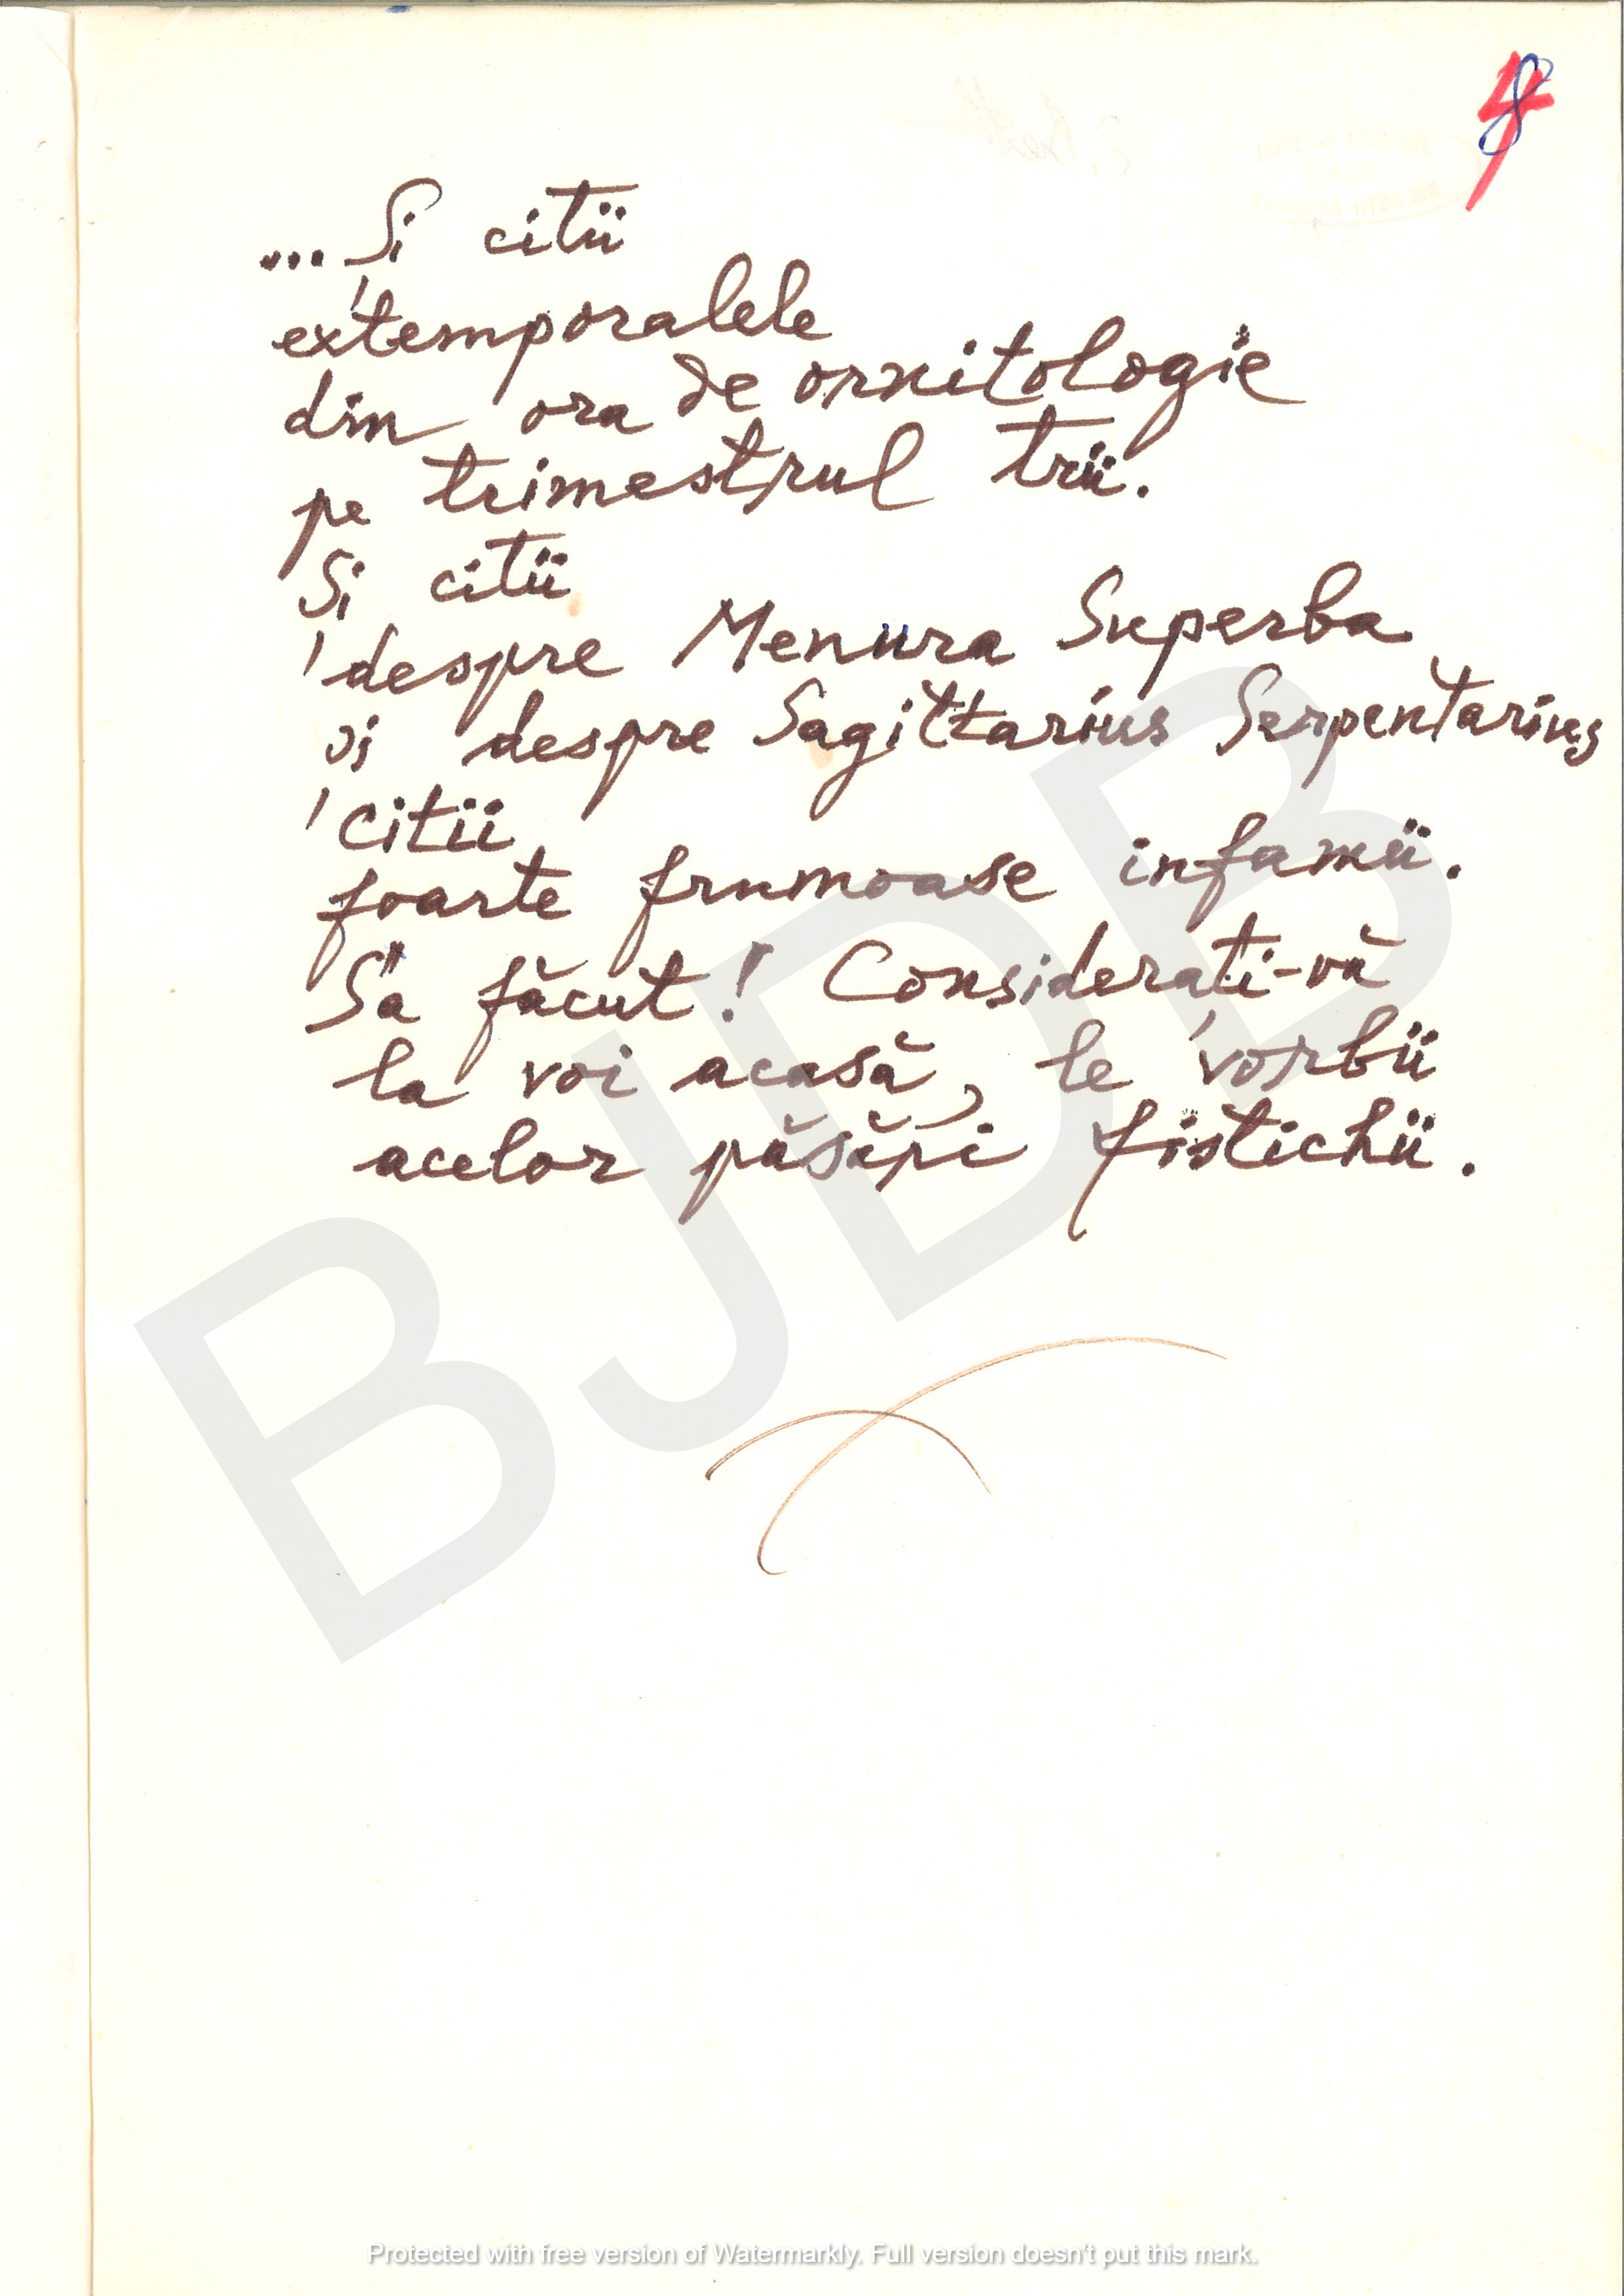 8
... Și citii
extemporalele
din ora de ornitologie
pe trimestrul trii.
Și citii
despre Menura Superba
și despre Sagittarius Serpentarius
citii
foarte frumoase infamii.
S'a făcut! Considerați-vă
la voi acasă, le vorbii
acelor păsări fistichii.
BJDB
Protected with free version of Watermarkly. Full version doesn't put this mark.